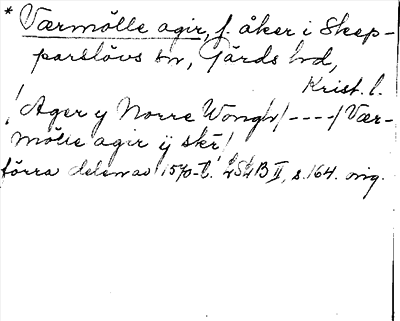 * Værmölle agir, f. åker i Skep-
parslövs sn, Gärds hd,
Krist. l.
/Ager y Norre Wongh/----/Vær-
mölle agir ÿ skē/
förra delen av 1570-t. LSLB II, s. 164. orig.